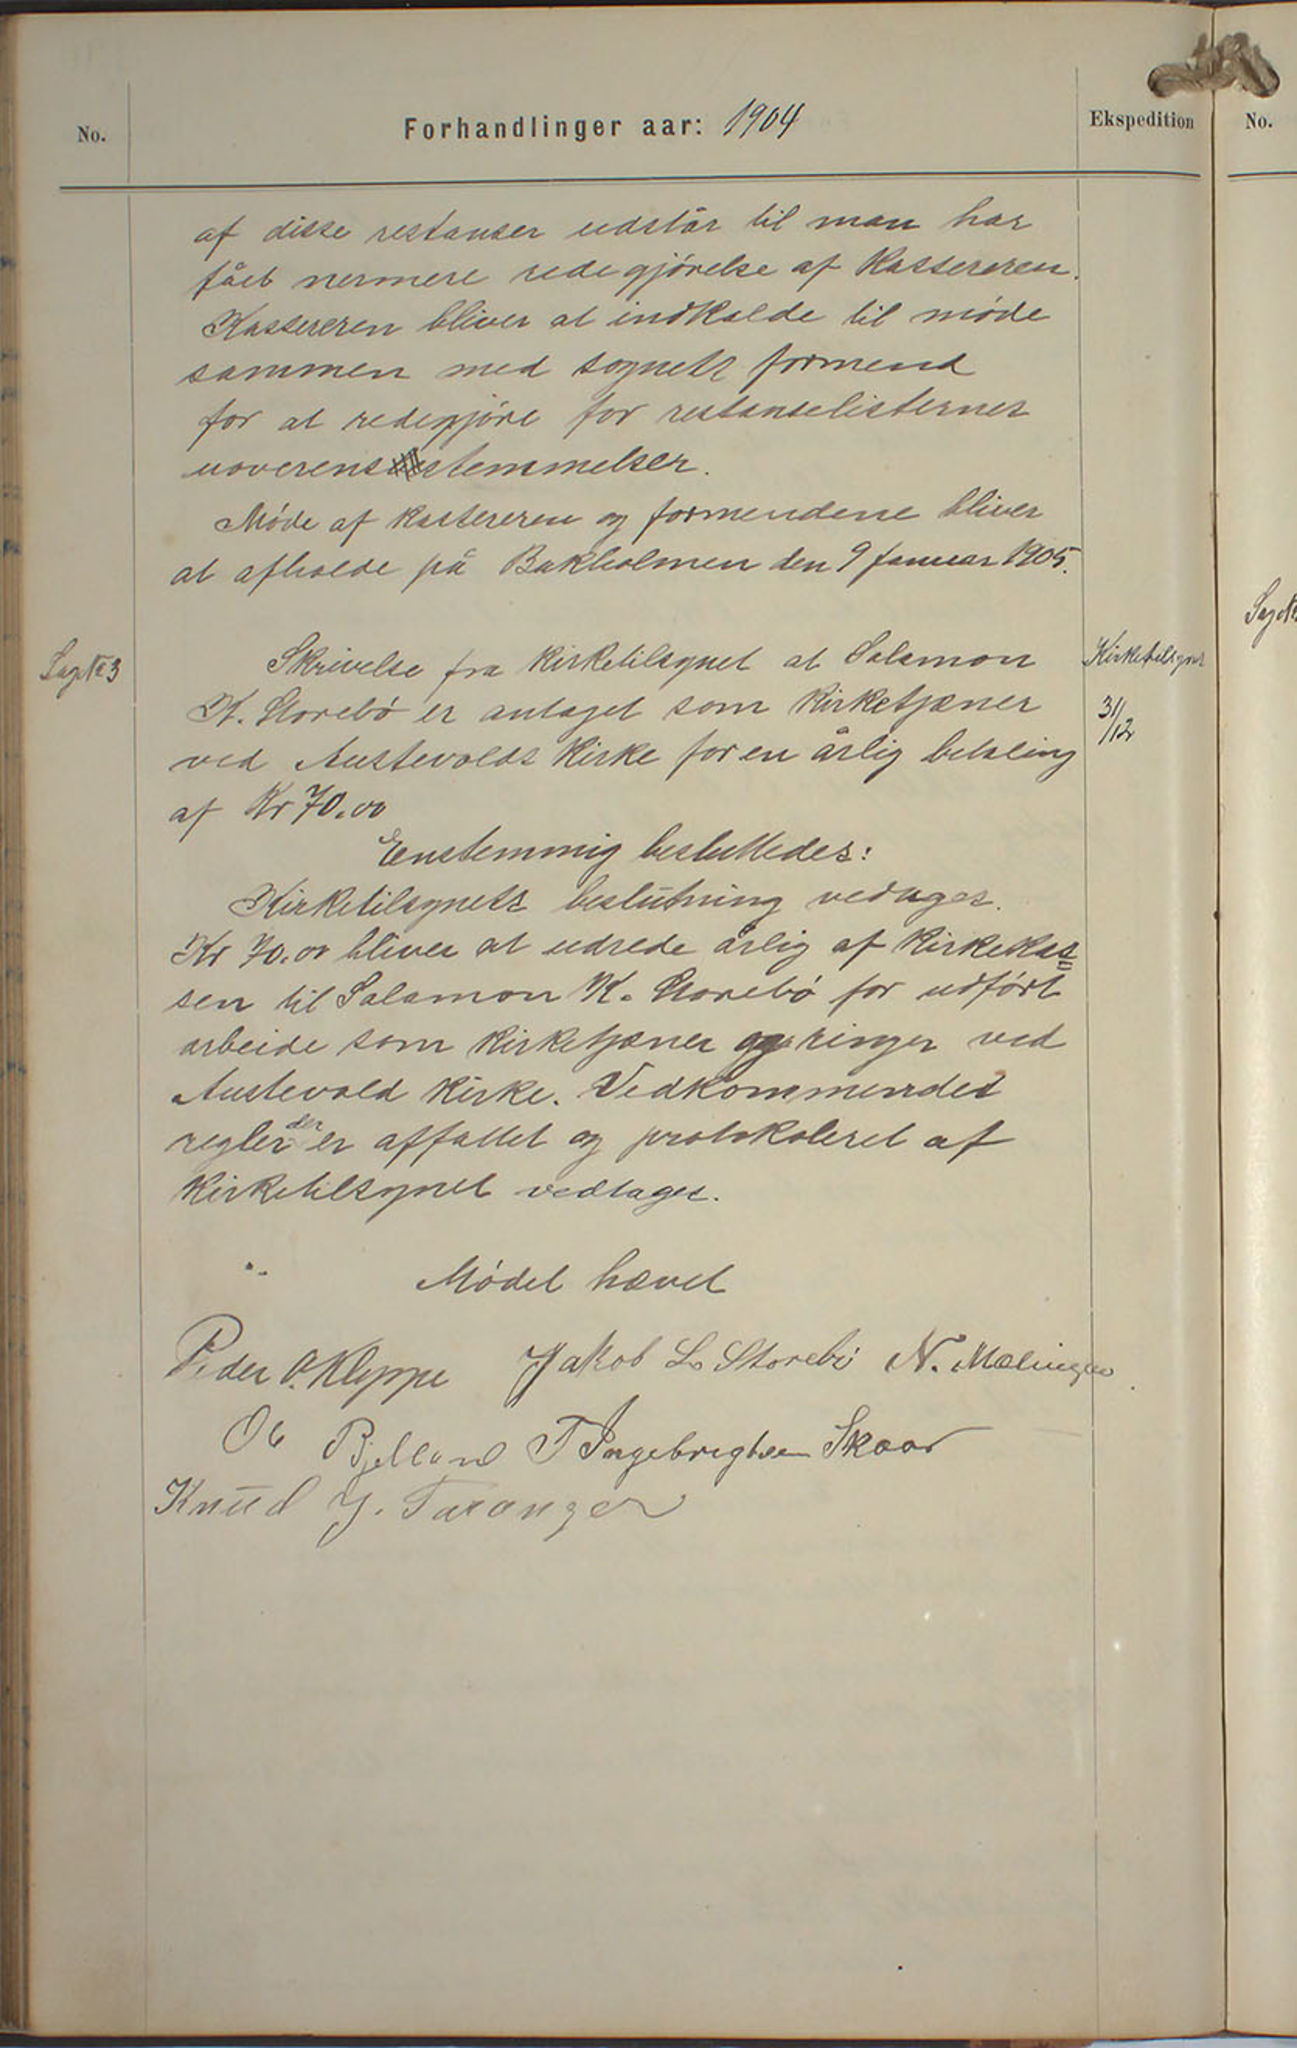 No.
Forhandlinger aar: 1904
Ekspedition
No.
af disse restanser udstår til man har
fået nermere redegjörelse af Kassereren.
Kassereren bliver at indkalde til möde
sammen med sognets formend
for at redegjöre for restanselisternes
uoverensstemmelser.
Möde af kassereren og formendene bliver
at afholde på Bakholmen den 9 Januar 1905.
Sag № 3
Skrivelse fra kirketilsynet at Salamon
K. Storebö er antaget som kirketjæner
ved Austevolds kirke for en årlig betaling
af Kr 70.00
Kirketilsynet
31/12
Sag №
Eenstemmig besluttedes:
Kirketilsynets beslutning vedtages.
Kr 70.00 bliver at udrede årlig af kirkekas=
sen til Salamon K. Storebö for udfört
arbeide som kirketjæner og ringer ved
Austevold kirke. Vedkommendes
regler der er affattet og protokoleret af
kirketilsynet vedtages.
Mödet hævet
Peder O. Kleppe Jakob L. Storebö N. Mælingen
Ole Bjelland T Ingebrigtsen Skaar
Knud J. Taranger